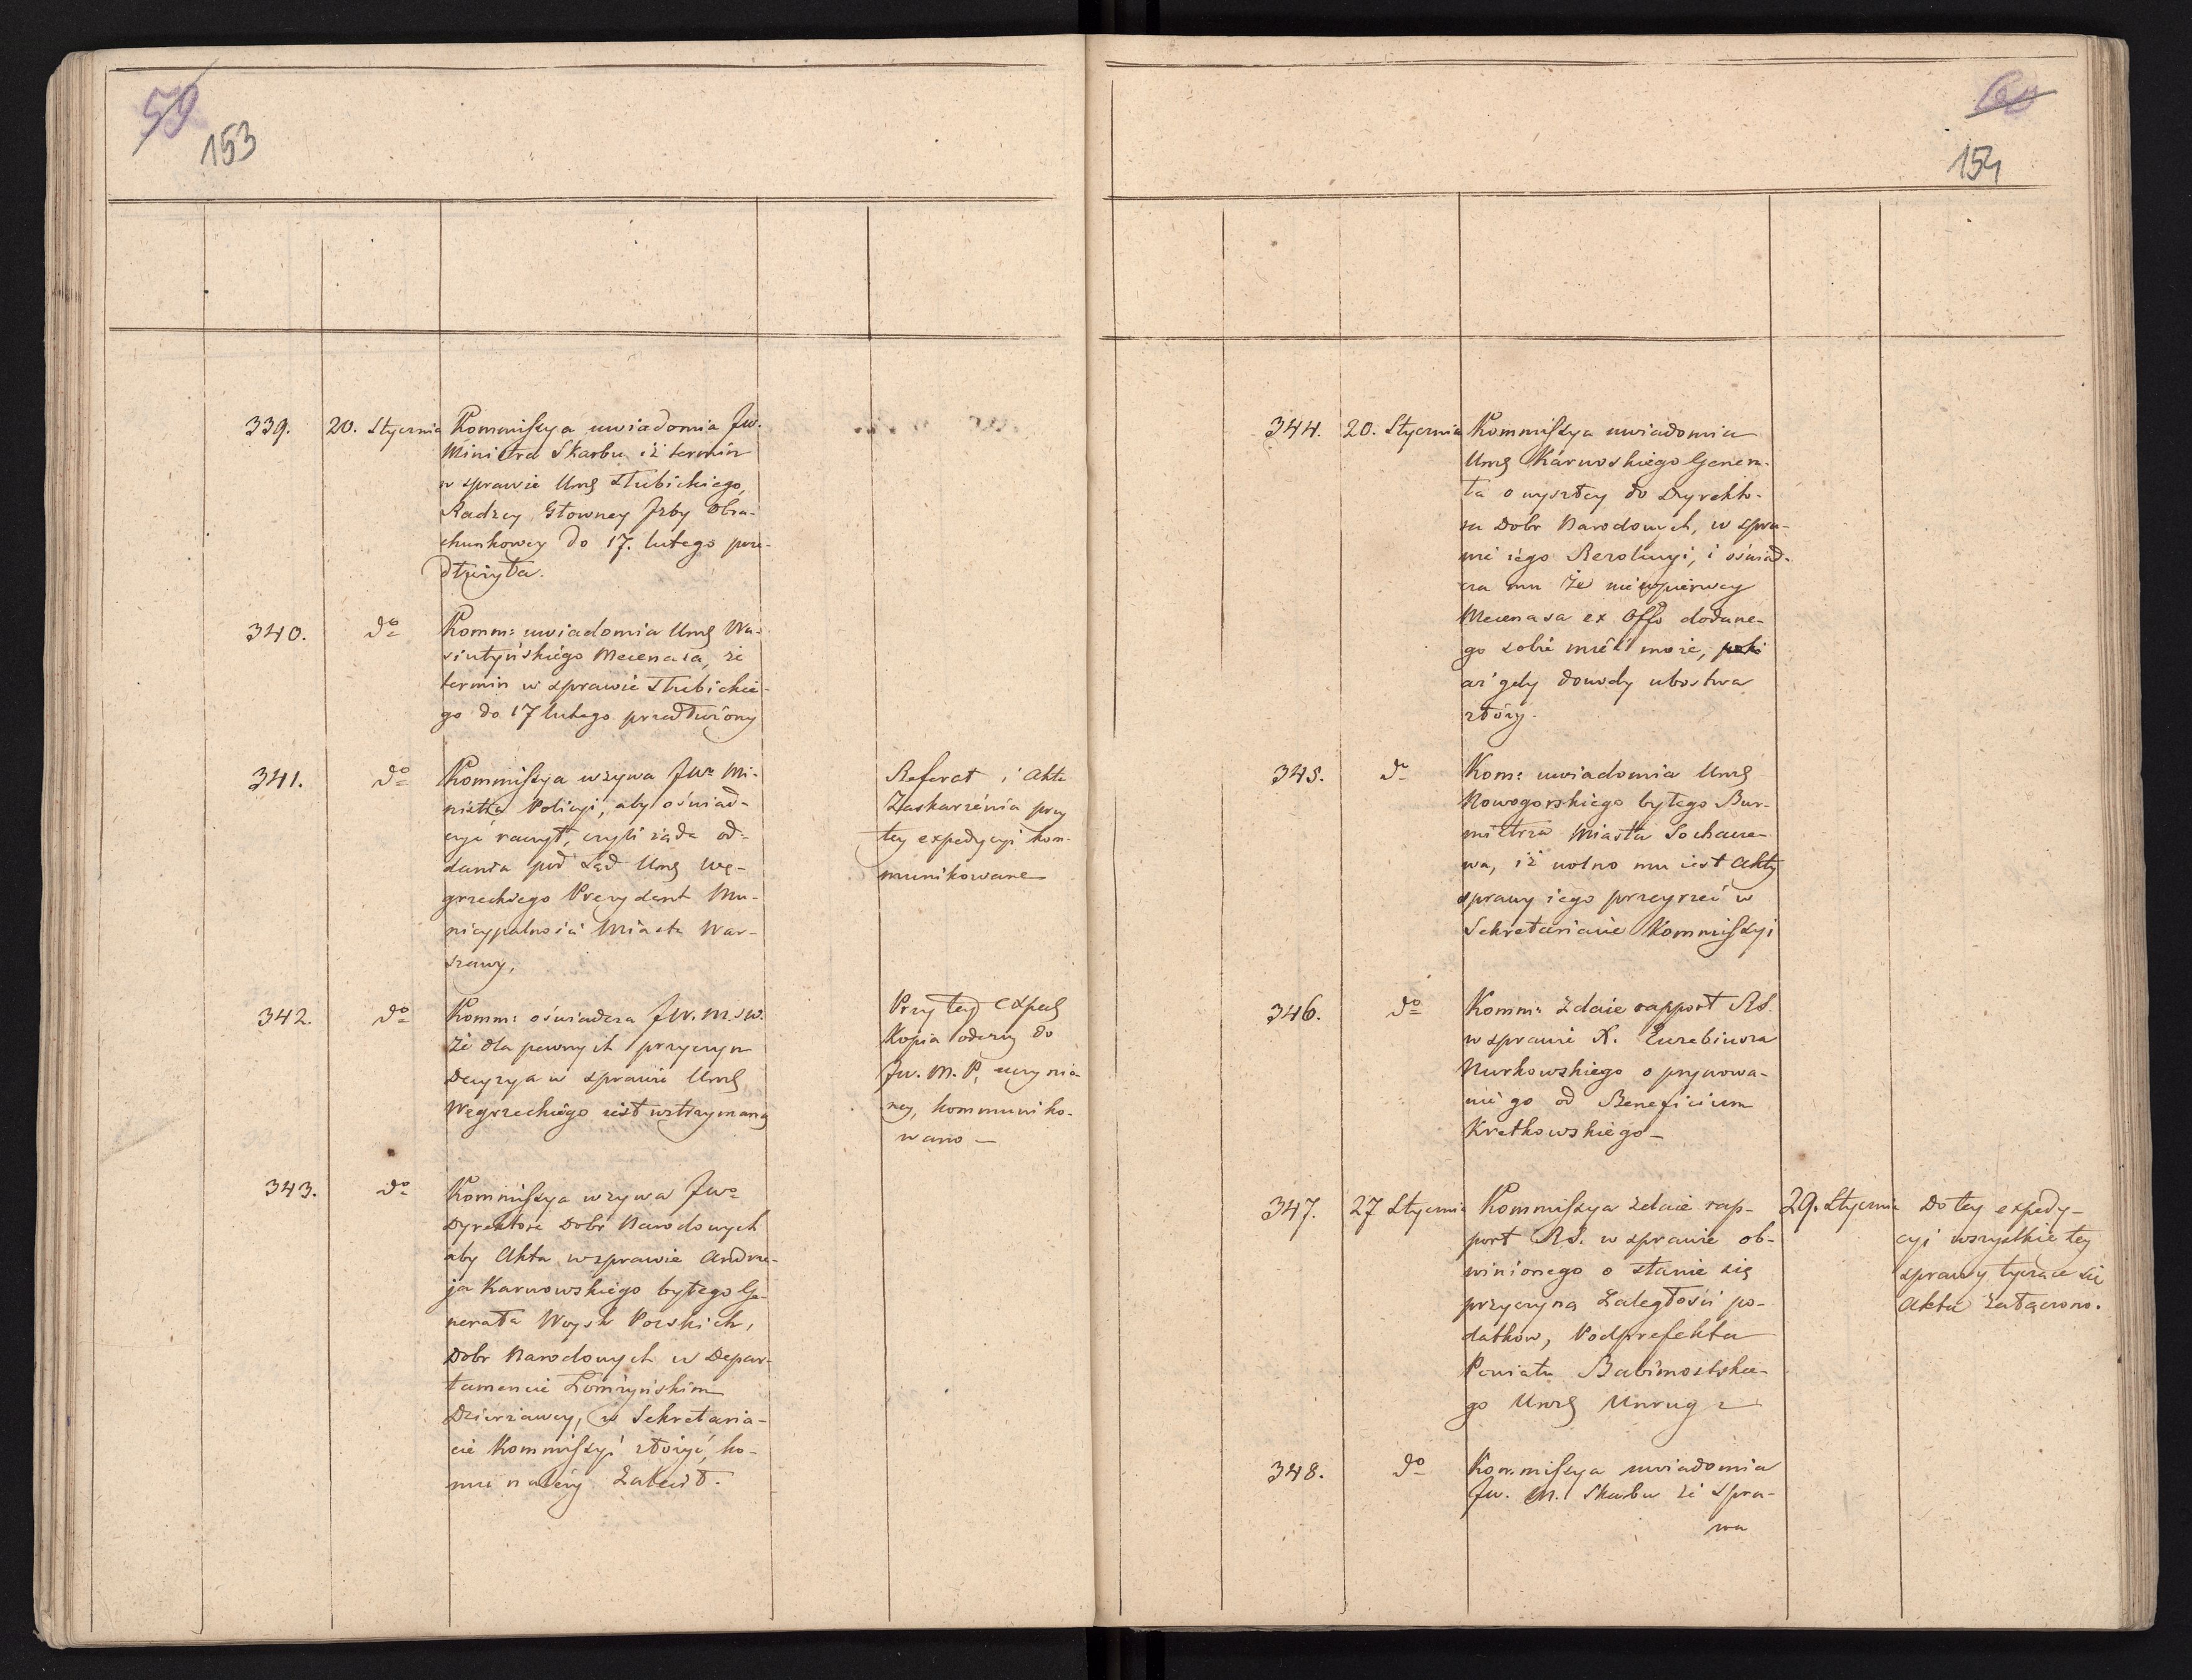 59
153
339. 20. Stycznia Kommissya uwiadomia Jw.
Ministra Skarbu iż termin
w sprawie Ung Słubickiego,
Radzcy Głowney Jzby Obra-
chunkowey do 17. lutego prze-
dłużyła.
340. do Komm: uwiadomia Ung Wa-
siutyńskiego Mecenasa, że
termin w sprawie Słubickie-
go do 17 lutego przedłużony
341. do Kommissya wzywa Jwo Mi-
nistra Policyi, aby oświad-
czyć raczył, czyli żąda od-
dania pod Sąd Ung Wę-
grzeckiego Prezydent Mu-
nicypalności Miasta War-
szawy,
Referat i Akta
Zaskarżenia przy
tey expedycyi kom-
munikowane
342. do Komm: oświadcza JW. M. SW.
że dla pewnych przyczyn
Decyzya w sprawie Ung
Węgrzeckiego iest wstrzymaną
Przy tey Exped
Kopia odezwy do
Jw. M. P. uczynio-
ney, kommuniko-
wano —
343. do Kommissya wzywa Jwo
Dyrektora Dobr Narodowych
aby Akta w sprawie Andrze-
ja Karwowskiego byłego Ge-
nerała Woysk Polskich,
Dobr Narodowych w Depar-
tamencie Łomżyńskim
Dzierżawcy, w Sekretarya-
cie Kommissyi złożyć, ko-
mu należy zalecił.
60
154
344. 20. Stycznia Kommissya uwiadomia
Ung Karwoskiego Genera-
ła o wyszłey do Dyrekto-
ra Dobr Narodowych, w spra-
wie iego Rezolucyi, i oświad-
cza mu że nie wpierwey
Mecenasa ex Offo dodane-
go sobie mieć może,
aż gdy dowody ubostwa
złoży.
345. do Kom: uwiadomia Ung
Nowogorskiego byłego Bur-
mistrza Miasta Sochacze-
wa, iż wolno mu iest Akty
sprawy iego przeyrzeć w
Sekretariacie Kommissyi
346. do Komm: zdaie rapport RS.
w sprawie X. Euzebiusza
Kurkowskiego o
nie go od Beneficium
Kretkowskiego —
347. 27 Stycznia Kommissya zdaie rap-
port RS. w sprawie ob-
winionego o stanie się
przyczyną zaległości po-
datkow, Podprefekta
Powiatu Babimostskie-
go Ung Unrug
29. Stycznia Do tey expedy-
cyi wszystkie tey
sprawy tyczące się
Akta załączono.
348. do Kommissya uwiadomia
Jw. M. Skarbu że spra-
wa